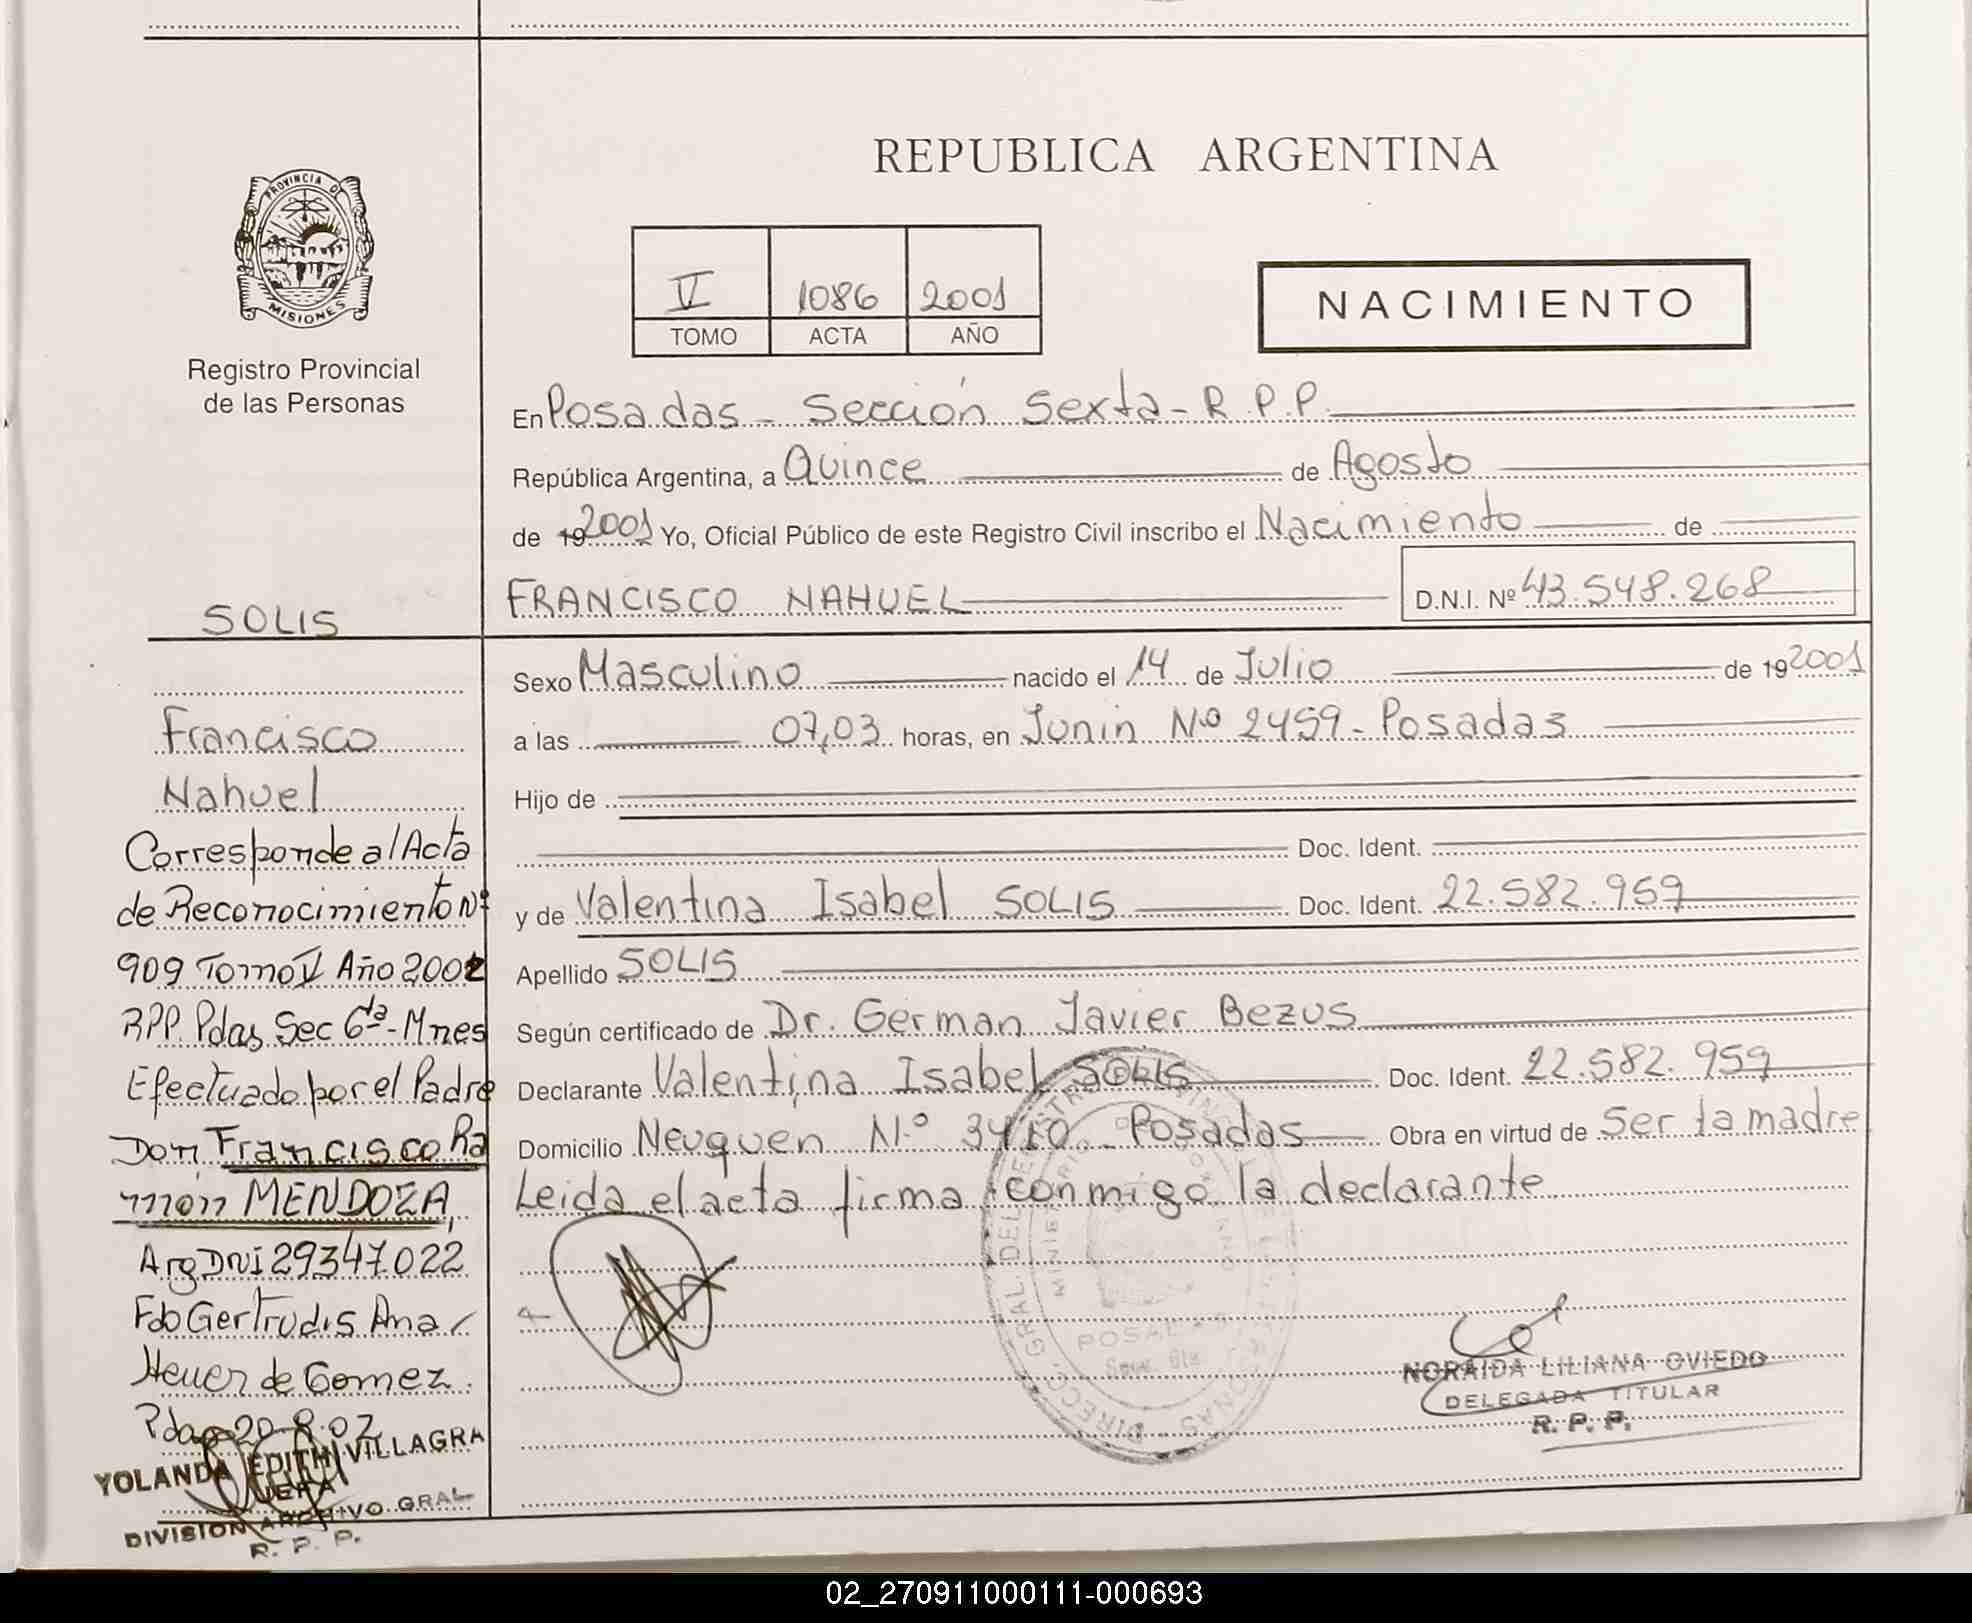 REPUBLICA ARGENTINA
PROVINCIA DE
MISIONES
Registro Provincial
de las Personas
V 1086 2001
TOMO ACTA AÑO
NACIMIENTO
En Posadas - Sección Sexta - R.P.P.
República Argentina, a Quince de Agosto
de 19 2001 Yo, Oficial Público de este Registro Civil inscribo el Nacimiento de
FRANCISCO NAHUEL D.N.I. Nº 43.548.268
Sexo Masculino nacido el 14 de Julio de 19 2001
a las 07,03 horas, en Junin Nº 2459 - Posadas
Hijo de
Doc. Ident.
y de Valentina Isabel SOLIS Doc. Ident. 22.582.959
Apellido SOLIS
Según certificado de Dr. German Javier Bezus
Declarante Valentina Isabel SOLIS Doc. Ident. 22.582.959
Domicilio Neuquen N.º 3410 - Posadas Obra en virtud de Ser la madre
Leida el acta firma conmigo la declarante
POSADAS
NORAIDA LILIANA OVIEDO
DELEGADA TITULAR
R. P. P.
SOLIS
Francisco
Nahuel
Corresponde al Acta
de Reconocimiento Nº
909 Tomo V Año 2002
RPP. Pdas Sec 6ta - Mnes
Efectuado por el Padre
Don Francisco Ra
món MENDOZA,
Arg DNI 29347022
Fdo Gertrudis Ana
Heuer de Gomez.
Pdas 20.8.02
YOLANDA EDITH VILLAGRA
JEFA
DIVISION ARCHIVO GRAL
R. P. P.
02_270911000111-000693